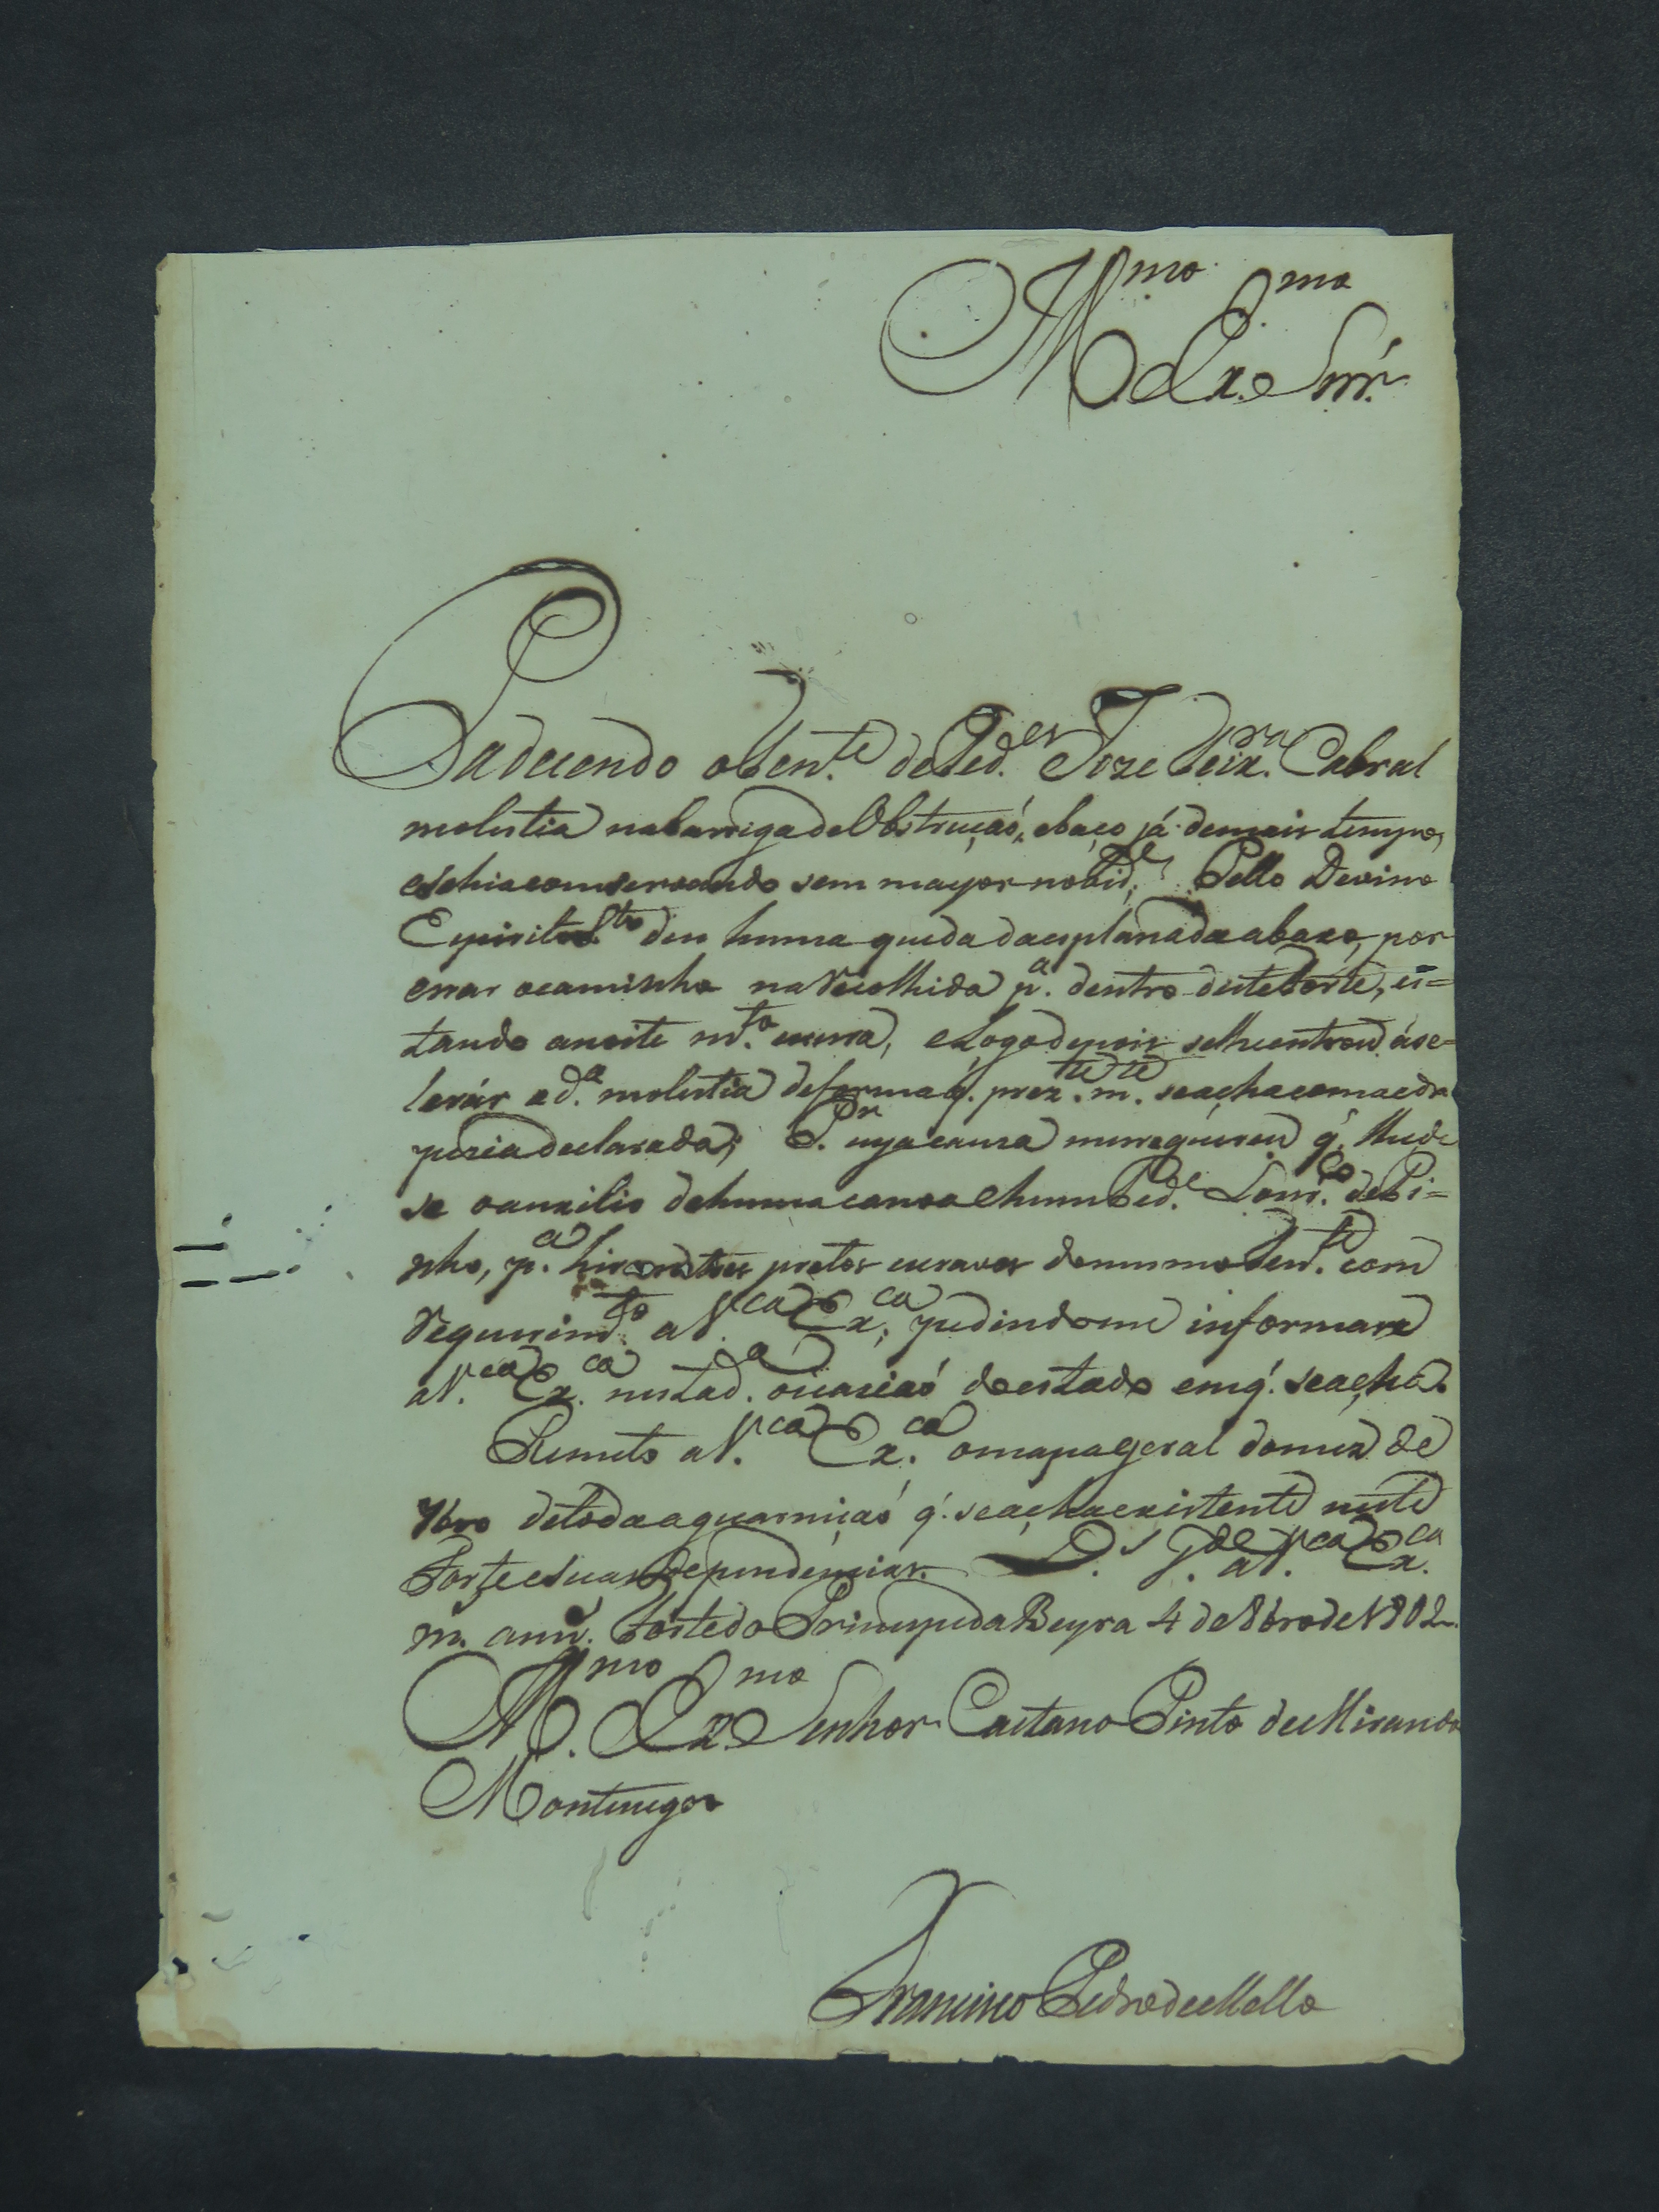 Ill.mo e Ex.mo Snr.
Padecendo o Ten.te de Ped.es Joze Teix.ra Cabral
molestia na barriga de Obstruçaó, e baço já de mais tempo,
e se hia comservando sem mayor nobid.e, Pello Devino
Espirito S.to deu huma queda da esplanada abaxo, por
errar o caminho na recolhida p.a dentro deste Forte, es=
tando a noite m.to escura, e logo depois se lhe entrou á se=
levár a d.a molestia de forma q. prez.te m.te se acha com a edro
pezia declarada; P.r cuja cauza me requereu q. lhe de
se o auxilio de huma canoa e hum Ped.e Lour.ço de Pi=
nho, p.a hir com tres pretos escravos do mesmo Ten.te com
requerim.to a V.ca Ex.ca, pedindome informase
a V.ca Ex.ca nesta d.a ocaziaó do estado em q. se acha.
Remeto a V.ca Ex.ca o mapa geral do mez de
7bro de toda a guarniçaó q. se acha existente neste
Forte e suas Dependencias. D.s G.de a V.ca Ex.ca
m. ann.s Forte do Principe da Beyra 4 de 8bro de 1802
Ill.mo e Ex.mo Senhor Caetano Pinto de Miranda
Montenegro
Francisco Pedro de Mello